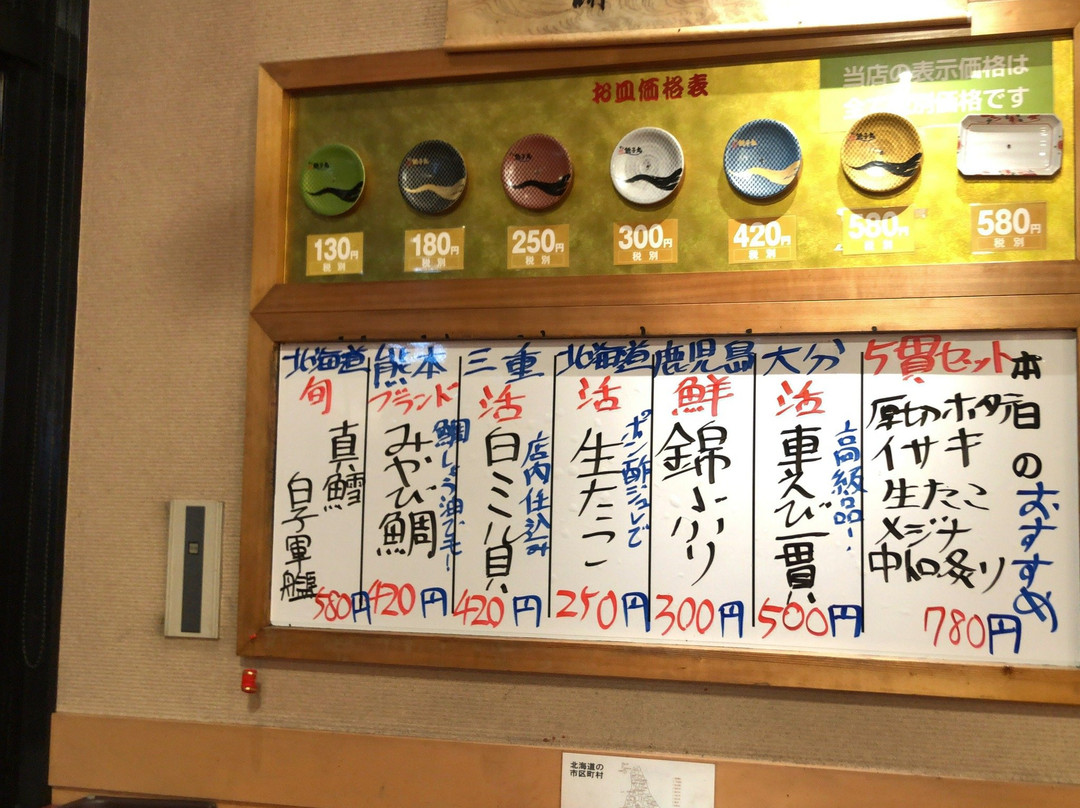 お皿価格表
当店の表示価格は
全て税別価格です
130円
税別
180円
税別
250円
税別
300円
税別
420円
税別
580円
税別
580円
税別
本日のおすすめ
5貫セット
厚切ホタテ
イサキ
生たこ
メジナ
中トロ炙り
780円
大分
活
車えび一貫
高級品!
500円
鹿児島
鮮
錦小川り
300円
北海道
活
生たこ
ポン酢ジュレで
250円
三重
活
白ミル貝
店内仕込み
420円
熊本
ブランド
みやび鯛
鯛しょう油でも
420円
北海道
旬
真鱈
白子軍艦
580円
北海道の
市区町村